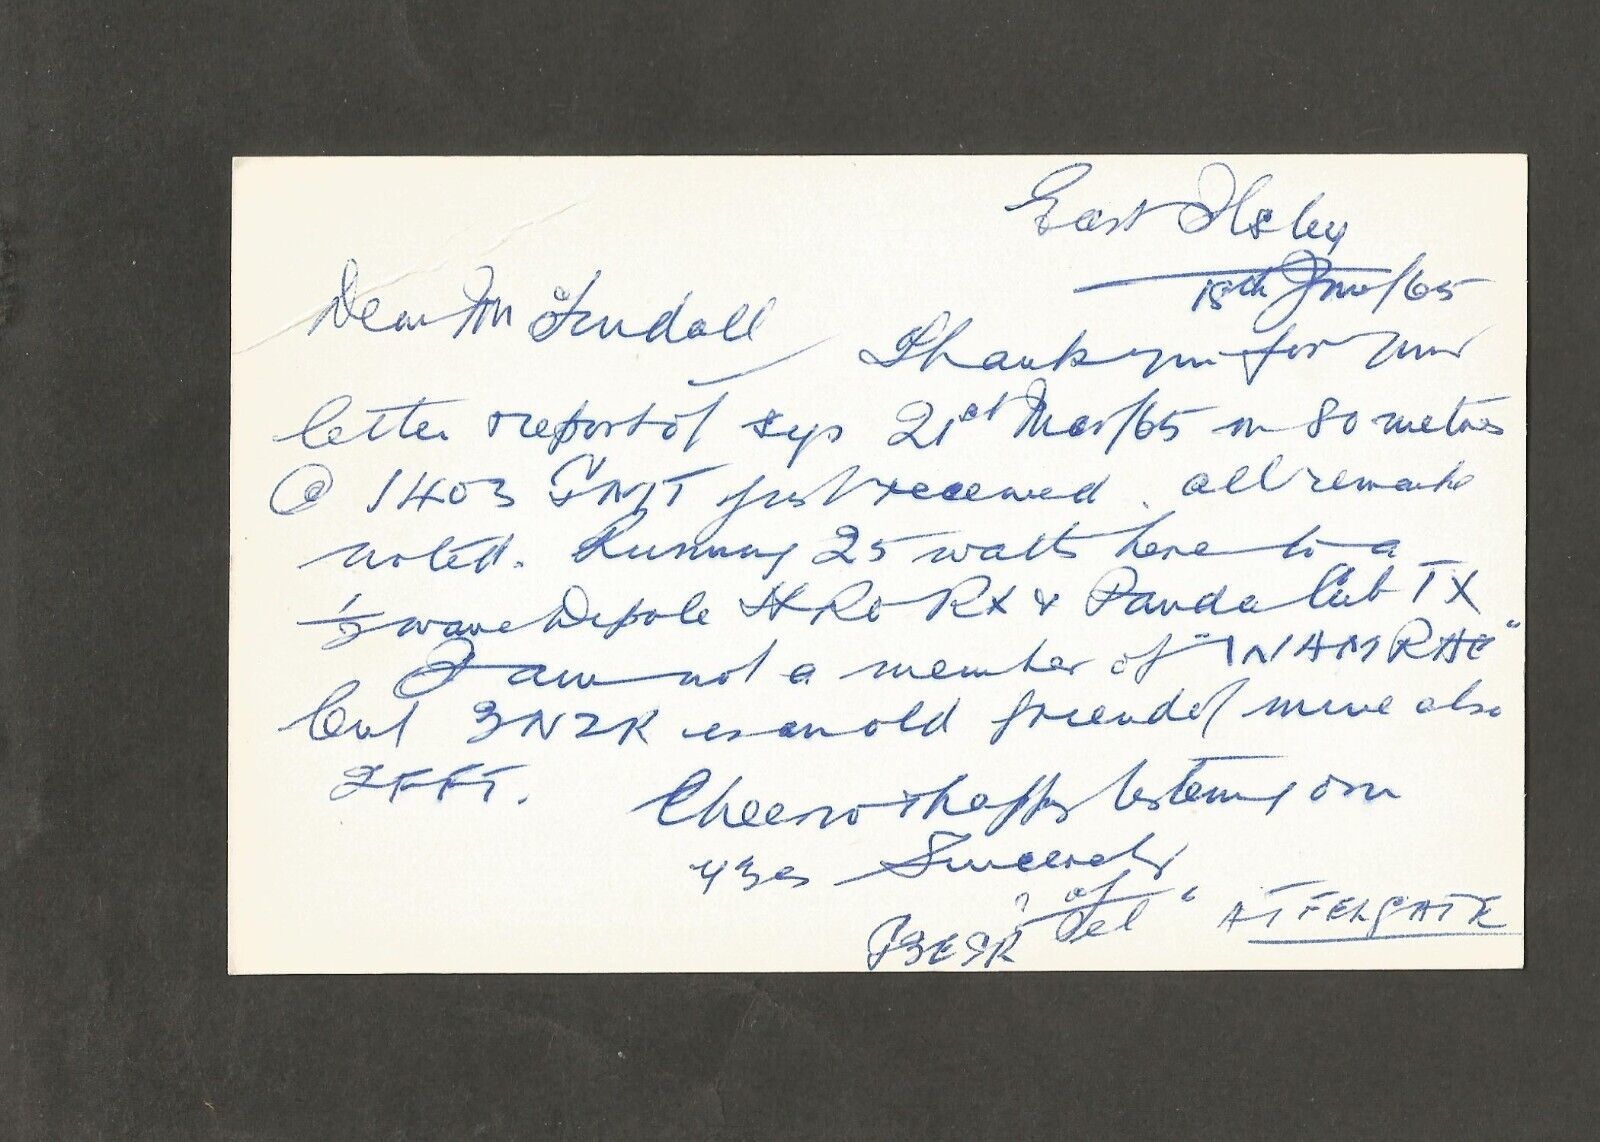 East Ilsley
18th June/65
Dear Mr Tindall
Thank you for your
letter & report of sigs 21st Mar/65 on 80 metres
@ 1403 GMT just received. all remarks
noted. Running 25 watts here to a
1/2 wave Dipole HRO RX & Panda Cub TX
I am not a member of "INAMRAE"
but 3NZR is an old friend of mine also
2FFT.
Cheerio & happy listening om
73es Sincerely
G3ESR "Tel" A T FELGATE